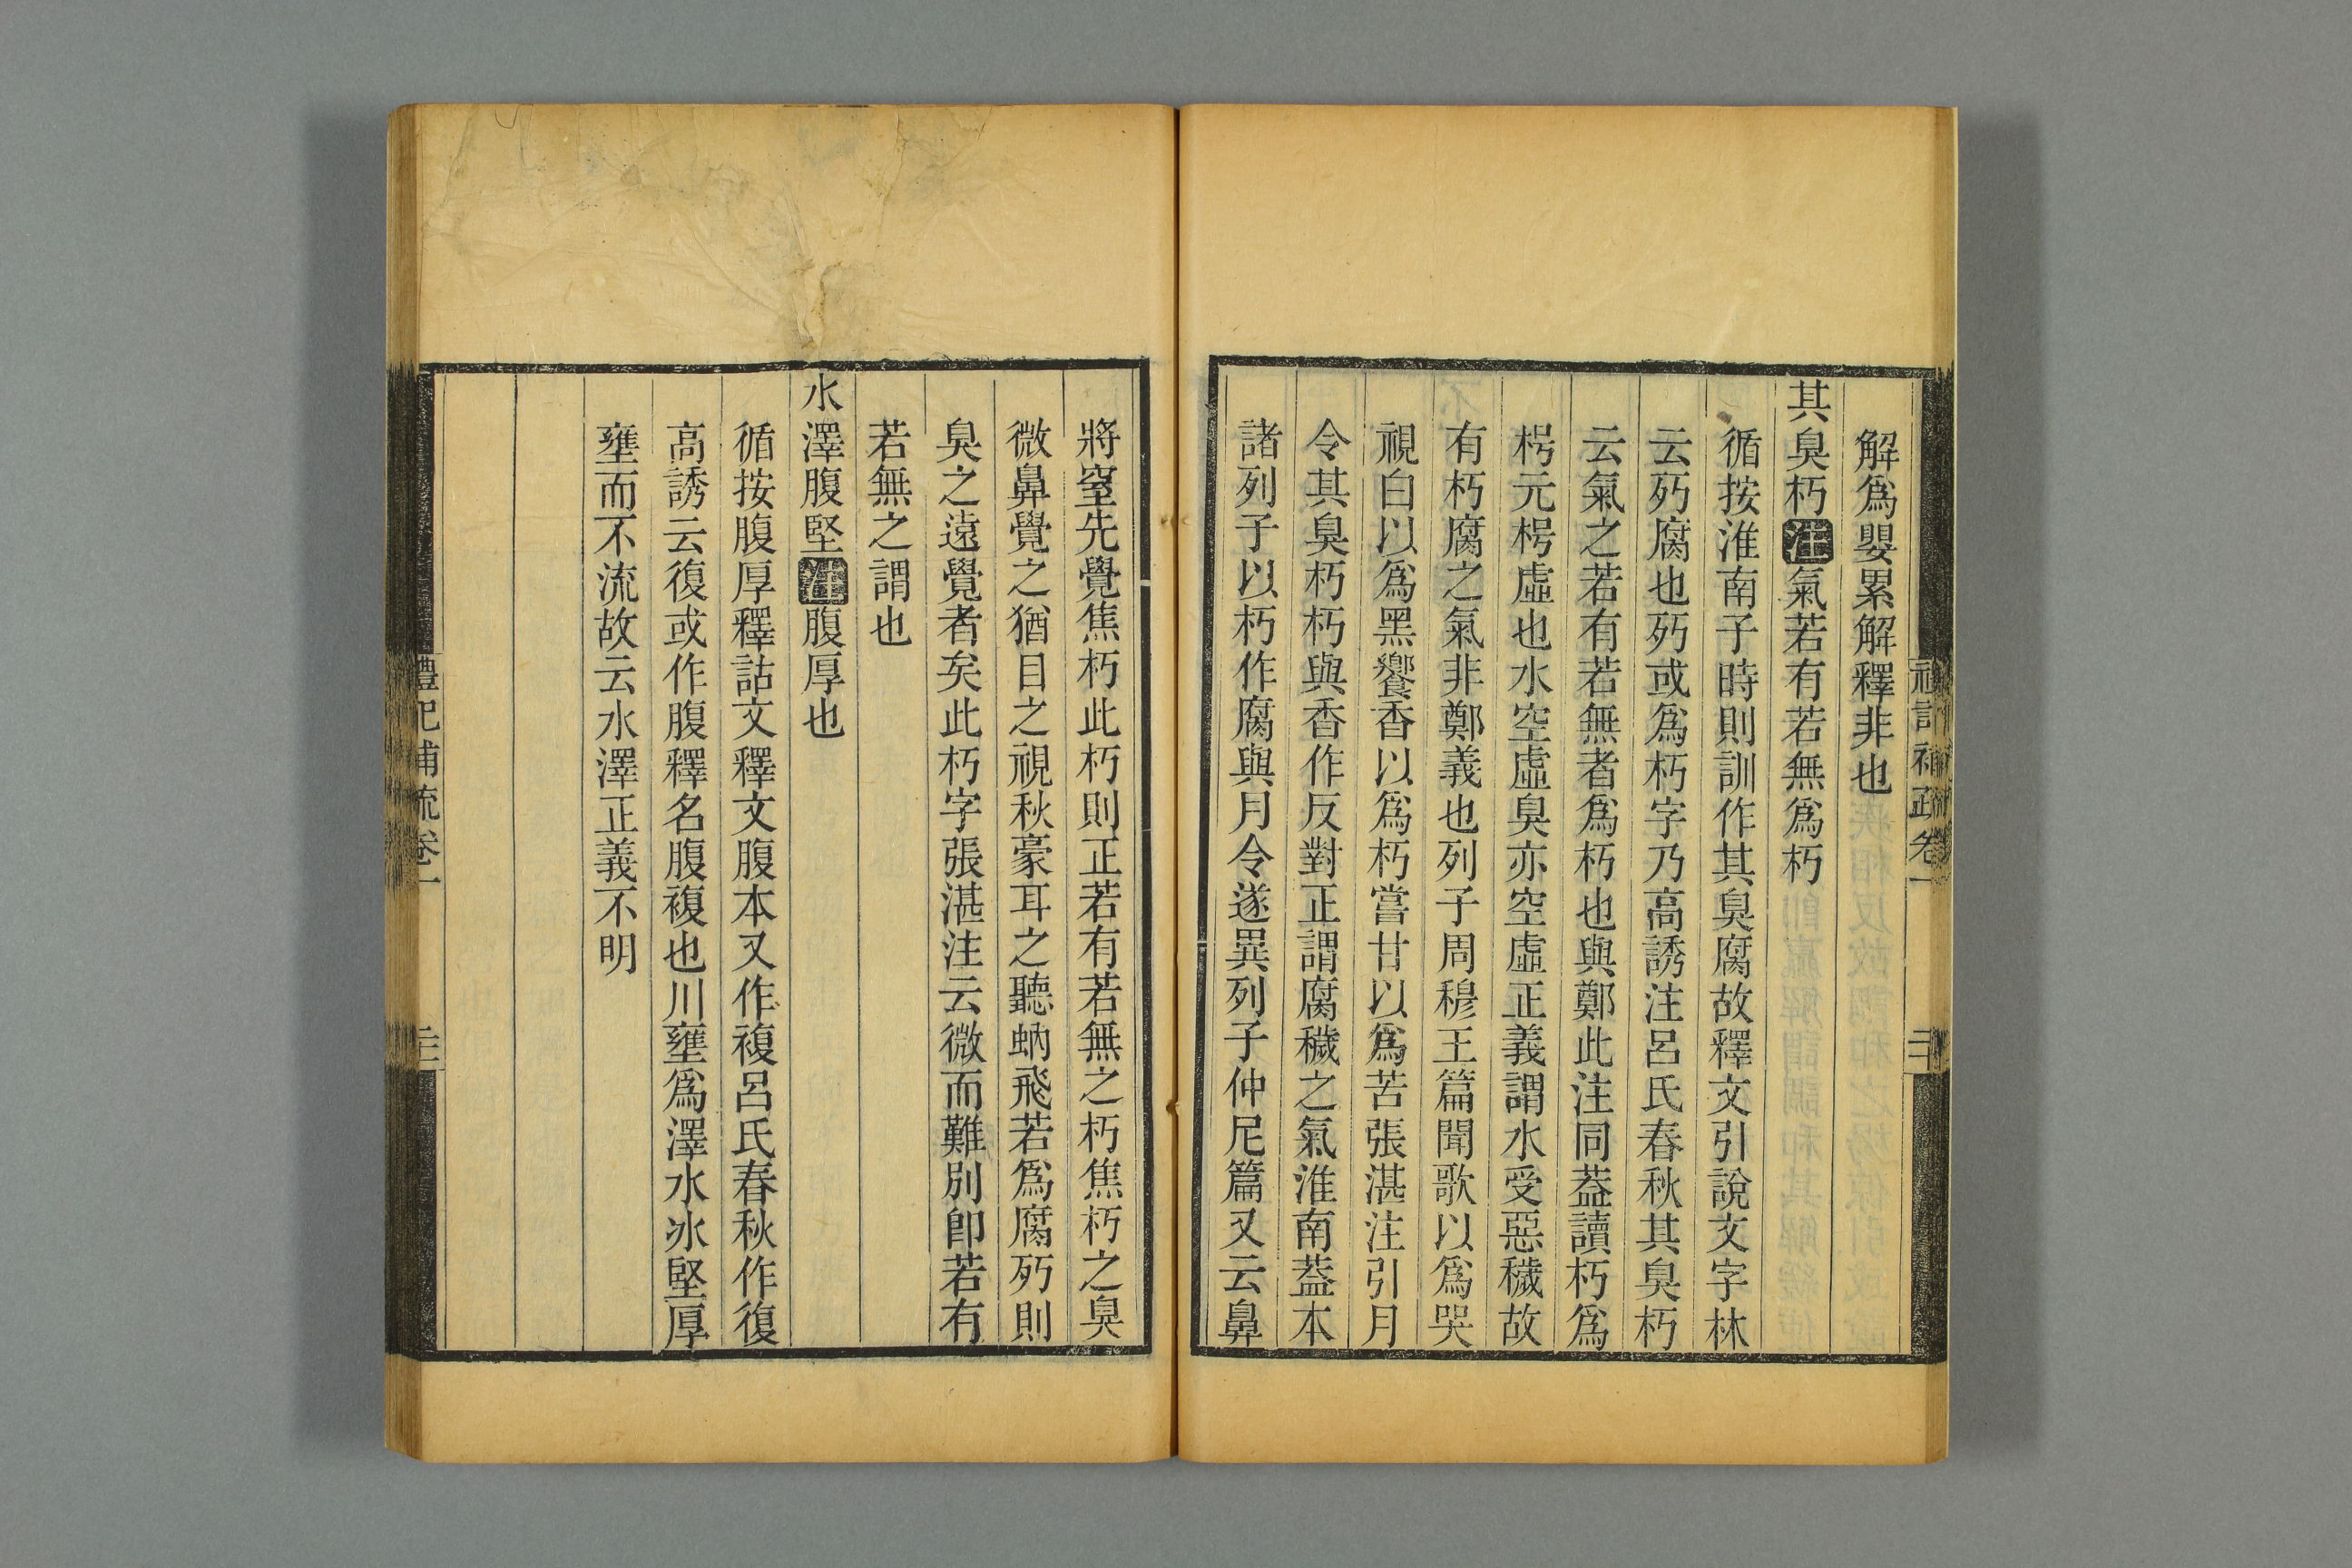 解爲嬰累解釋非也
其臭朽注氣若有若無爲朽
循按淮南子時則訓作其臭腐故釋文引說文字林
云𣦸腐也𣦸或爲朽字乃高誘注呂氏春秋其臭朽
云氣之若有若無者爲朽也與鄭此注同葢讀朽爲
枵元枵虛也水空虛臭亦空虛正義謂水受惡穢故
有朽腐之氣非鄭義也列子周穆王篇聞歌以爲哭
視白以爲黑饗香以爲朽嘗甘以爲苦張湛注引月
令其臭朽朽與香作反對正謂腐穢之氣淮南葢本
諸列子以朽作腐與月令遂異列子仲尼篇又云鼻
將窒先覺焦朽此朽則正若有若無之朽焦朽之臭
微鼻覺之猶目之視秋豪耳之聽蚋飛若爲腐𣦸則
臭之遠覺者矣此朽字張湛注云微而難別卽若有
若無之謂也
水澤腹堅注腹厚也
循按腹厚釋詁文釋文腹本又作複呂氏春秋作復
高誘云復或作腹釋名腹複也川壅爲澤水冰堅厚
壅而不流故云水澤正義不明
禮記補疏卷一